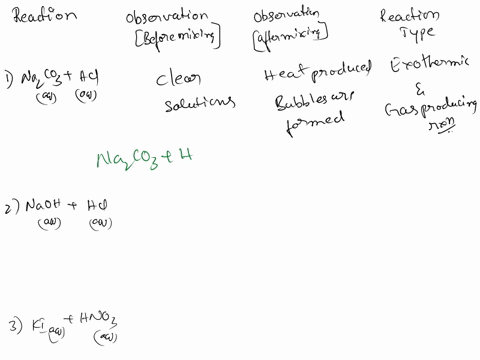 Reaction Observation [Before mixing] Observation [after mixing] Reaction Type
1) Na₂CO₃ (aq) + HCl (aq) Clear Solutions Heat produced Bubbles are formed Exothermic & Gas producing rxn
Na₂CO₃ + H
2) NaOH (aq) + HCl (aq)
3) KI (aq) + HNO₃ (aq)